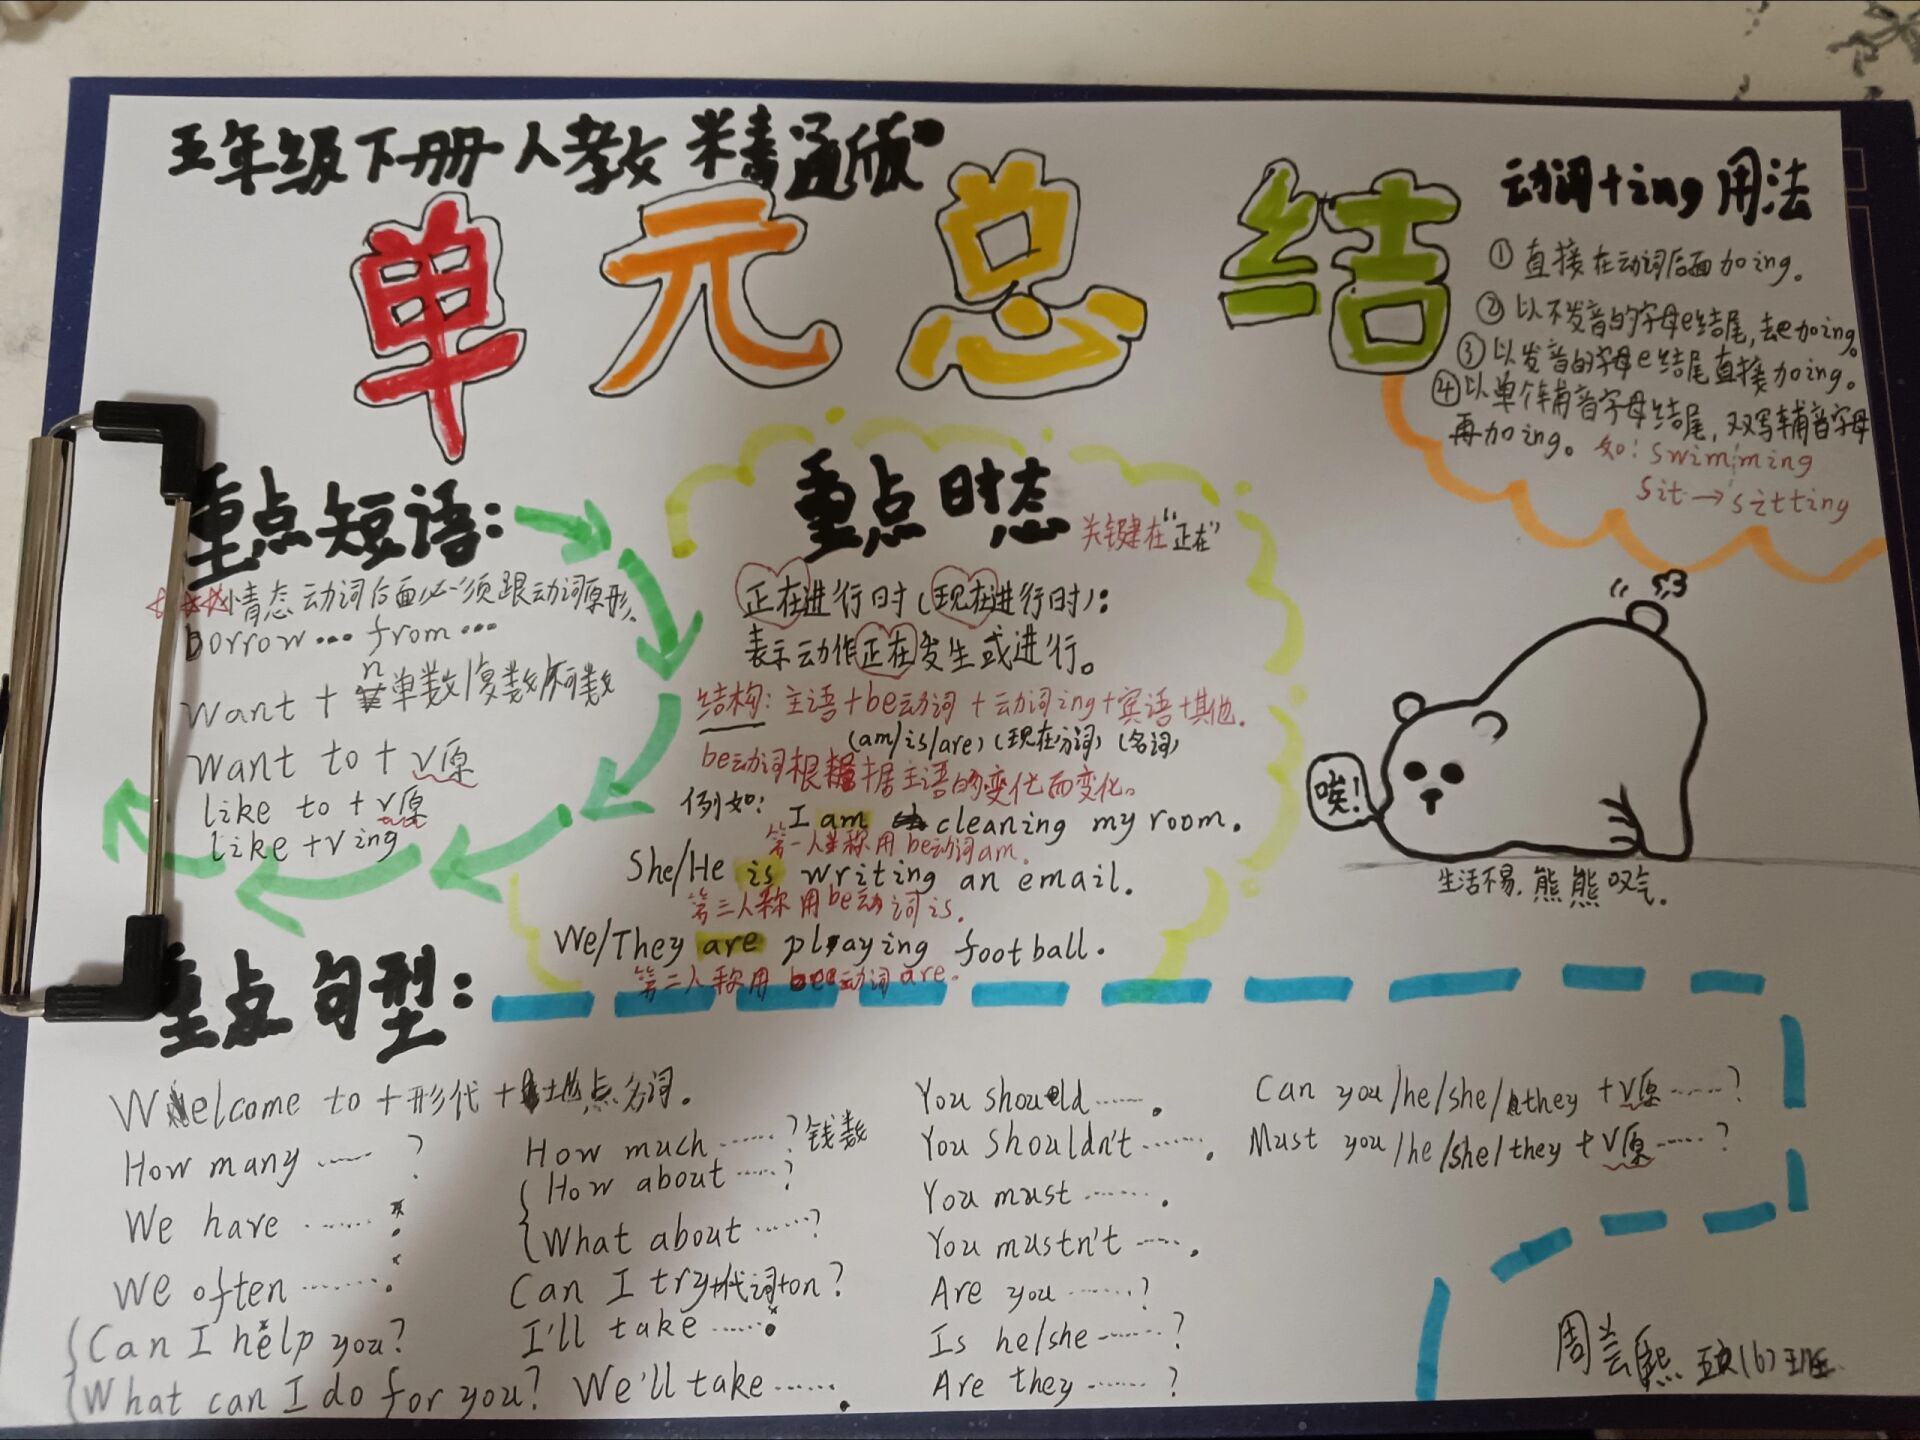 五年级下册人教精通版
单元总结
动词+ing用法
①直接在动词后面加ing。
②以不发音的字母e结尾,去e加ing。
③以发音的字母e结尾直接加ing。
④以单个辅音字母结尾,双写辅音字母
再加ing。如:swimming
sit→sitting
重点短语:
情态动词后面必须跟动词原形。
borrow…from…
want + n单数/复数/不可数
want to + v原
like to + v原
like + ving
重点时态
关键在"正在"
正在进行时(现在进行时):
表示动作正在发生或进行。
结构:主语+be动词+动词ing+宾语+其他.
(am/is/are)(现在分词)(名词)
be动词根据主语的变化而变化。
例如:I am cleaning my room.
第一人称用be动词am.
She/He is writing an email.
第三人称用be动词is.
We/They are playing football.
第二人称用be动词are.
唉!
生活不易,熊熊叹气.
重点句型:
Welcome to +形代+地点名词.
How many ……?
We have …….
We often …….
Can I help you?
What can I do for you?
How much ……?钱数
How about ……?
What about ……?
Can I try+代词+on?
I'll take …….
We'll take …….
You should …….
You shouldn't …….
You must …….
You mustn't …….
Are you ……?
Is he/she ……?
Are they ……?
Can you/he/she/they + v原……?
Must you/he/she/they + v原……?
周芸熙 五(6)班